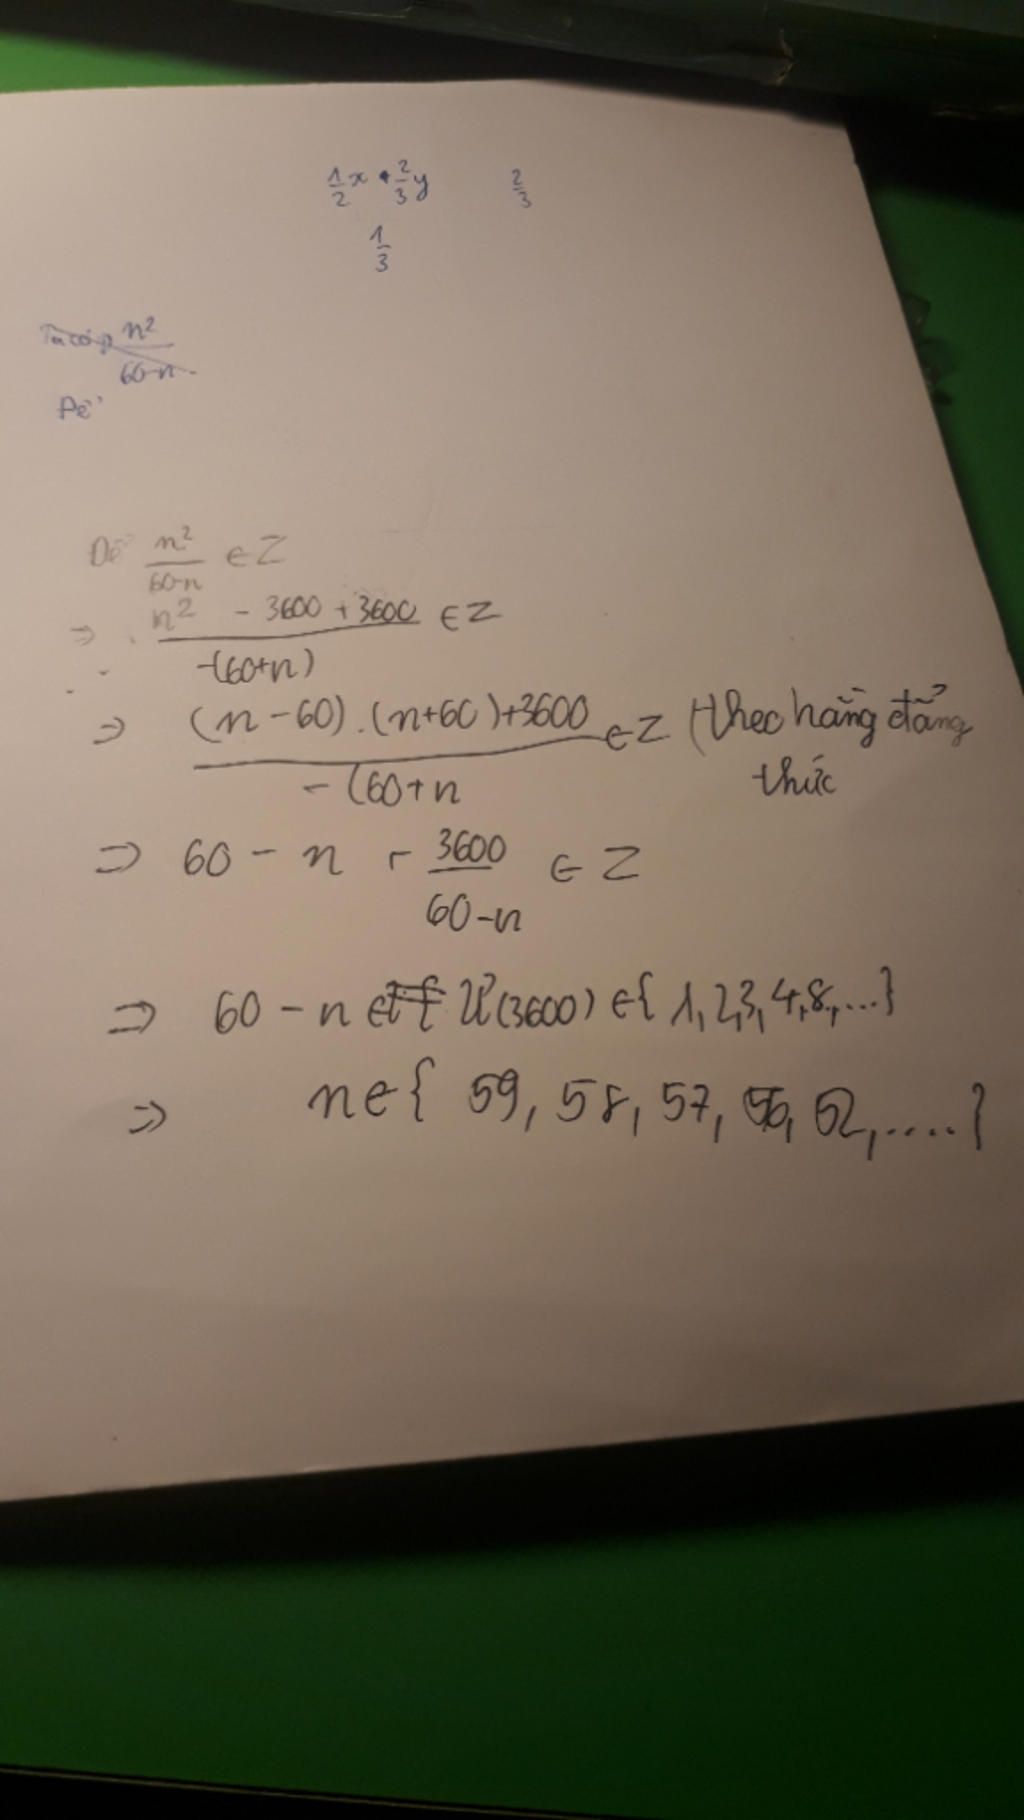 1/2 x · 2/3 y 2/3
1/3
Ta có n²/60-n
Để
Để n²/60-n ∈ Z
⇒ n² - 3600 + 3600/-(60+n) ∈ Z
⇒ (n-60).(n+60)+3600/-(60+n ∈ Z (theo hằng đẳng
thức
⇒ 60 - n - 3600/60-n ∈ Z
⇒ 60 - n ∈ Ư(3600) ∈ { 1, 2, 3, 4, 8, ... }
⇒ n ∈ { 59, 58, 57, 56, 52, .... }